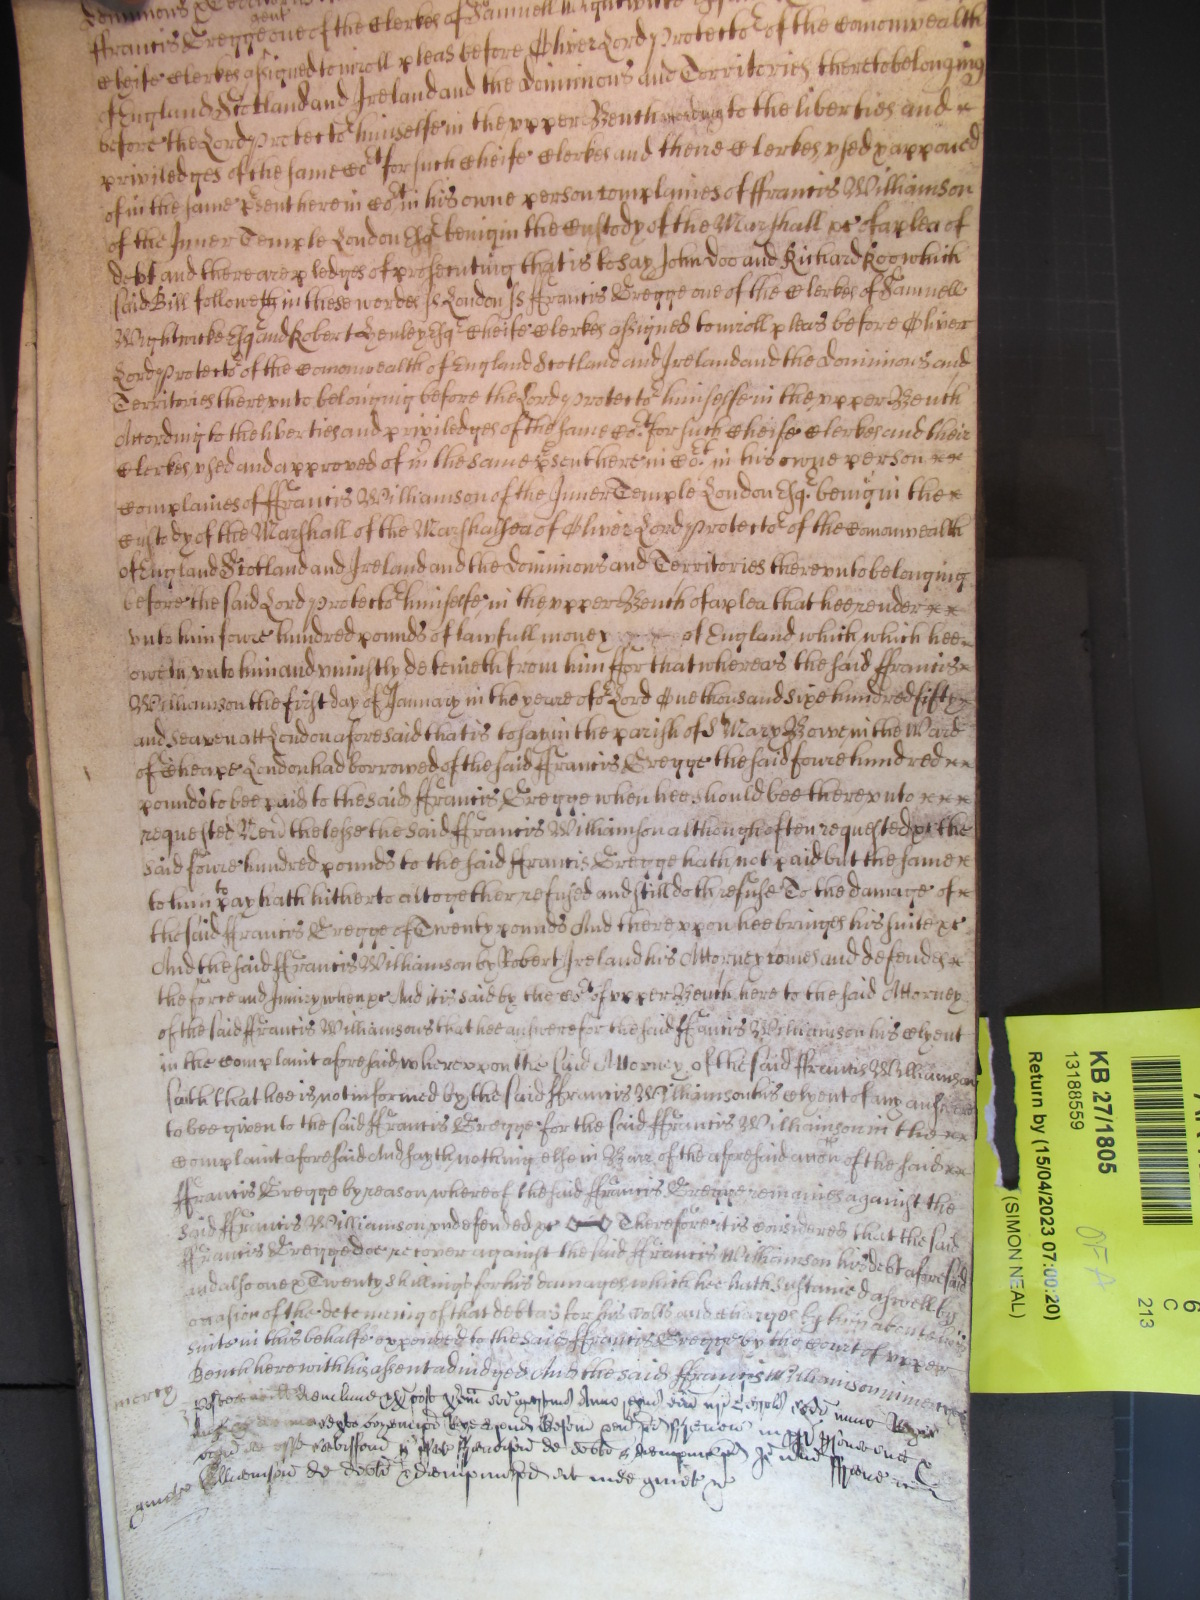 Dominions & Territories
gent
ffrancis Gregge one of the Clerkes of Samuell Wightwicke
Cheife Clerkes assigned to inroll pleas before Oliver Lord Protector of the Comonwealth
of England Scotland and Ireland and the Dominions and Territories thereto belonging
before the Lord Protector himselfe in the upper Bench according to the liberties and
priviledges of the same Cort for such Cheife Clerkes and there Clerkes used & approved
of in the same psent here in Cort in his owne person complaines of ffrancis Williamson
of the Inner Temple London Esqr being in the Custody of the Marshall &c of a plea of
debt and there are pledges of prosecuting that is to say John Doo and Richard Roo which
said Bill followeth in these wordes ss London ss ffrancis Gregge one of the Clerkes of Samuell
Wightwicke Esq and Robert Henley Esqr Cheife Clerkes assigned to inroll pleas before Oliver
Lord Protector of the Comonwealth of England Scotland and Ireland and the Dominions and
Territories thereunto belonging before the Lord Protector himselfe in the upper Bench
According to the liberties and priviledges of the same Cort for such Cheife Clerkes and their
Clerkes used and approved of in the same psent here in Cort in his owne person
Complaines of ffrancis Williamson of the Inner Temple London Esqr being in the
Custody of the Marshall of the Marshalsea of Oliver Lord Protector of the Comonwealth
of England Scotland and Ireland and the Dominions and Territories thereunto belonging
before the said Lord Protector himselfe in the upper Bench of a plea that hee render
unto him fowre hundred pounds of lawfull money of England which which hee
oweth unto him and uniustly deteineth from him ffor that whereas the said ffrancis
Williamson the first day of January in the yeare of or Lord One thousand sixe hundred fifty
and seaven att London aforesaid that is to say in the parish of St Mary Bowe in the Ward
of Cheape London had borrowed of the said ffrancis Gregge the said fowre hundred
pounds to bee paid to the said ffrancis Gregge when hee should bee thereunto
requested Nevertheless the said ffrancis Williamson although often requested &c the
said fowre hundred pounds to the said ffrancis Gregge hath not paid but the same
to him to pay hath hitherto altogether refused and still doth refuse To the damage of
the said ffrancis Gregge of Twenty pounds And thereupon hee bringes his suite &c
And the said ffrancis Williamson by Robert Ireland his Attorney comes and defendes
the force and Iniury when &c And it is said by the Cort of upper Bench here to the said Attorney
of the said ffrancis Williamsons that hee answere for the said ffrancis Williamson his Clyent
in the Complaint aforesaid whereupon the said Attorney of the said ffrancis Williamson
saith that hee is not informed by the said ffrancis Williamson his clyent of any answere
to bee given to the said ffrancis Gregge for the said ffrancis Williamson in the
Complaint aforesaid And sayth nothing else in Barr of the aforesaid accon of the said
ffrancis Gregge by reason whereof the said ffrancis Gregge remaines against the
said ffrancis Williamson undefended &c Therefore it is considered that the said
ffrancis Gregge doe recover against the said ffrancis Williamson his debt aforesaid
and also one & Twenty shillings for his damages which hee hath sustained aswell by
occasion of the deteining of that debt as for his Costs and Charges by him about his
suite in this behalfe expended to the said ffrancis Gregge by the Court of upper
Bench here with his assent adiudged And the said ffrancis Williamson in mercy
mercy
KB 27/1805
13188559
Return by (15/04/2023 07:00:20)
(SIMON NEAL)
OFA
6
C
213